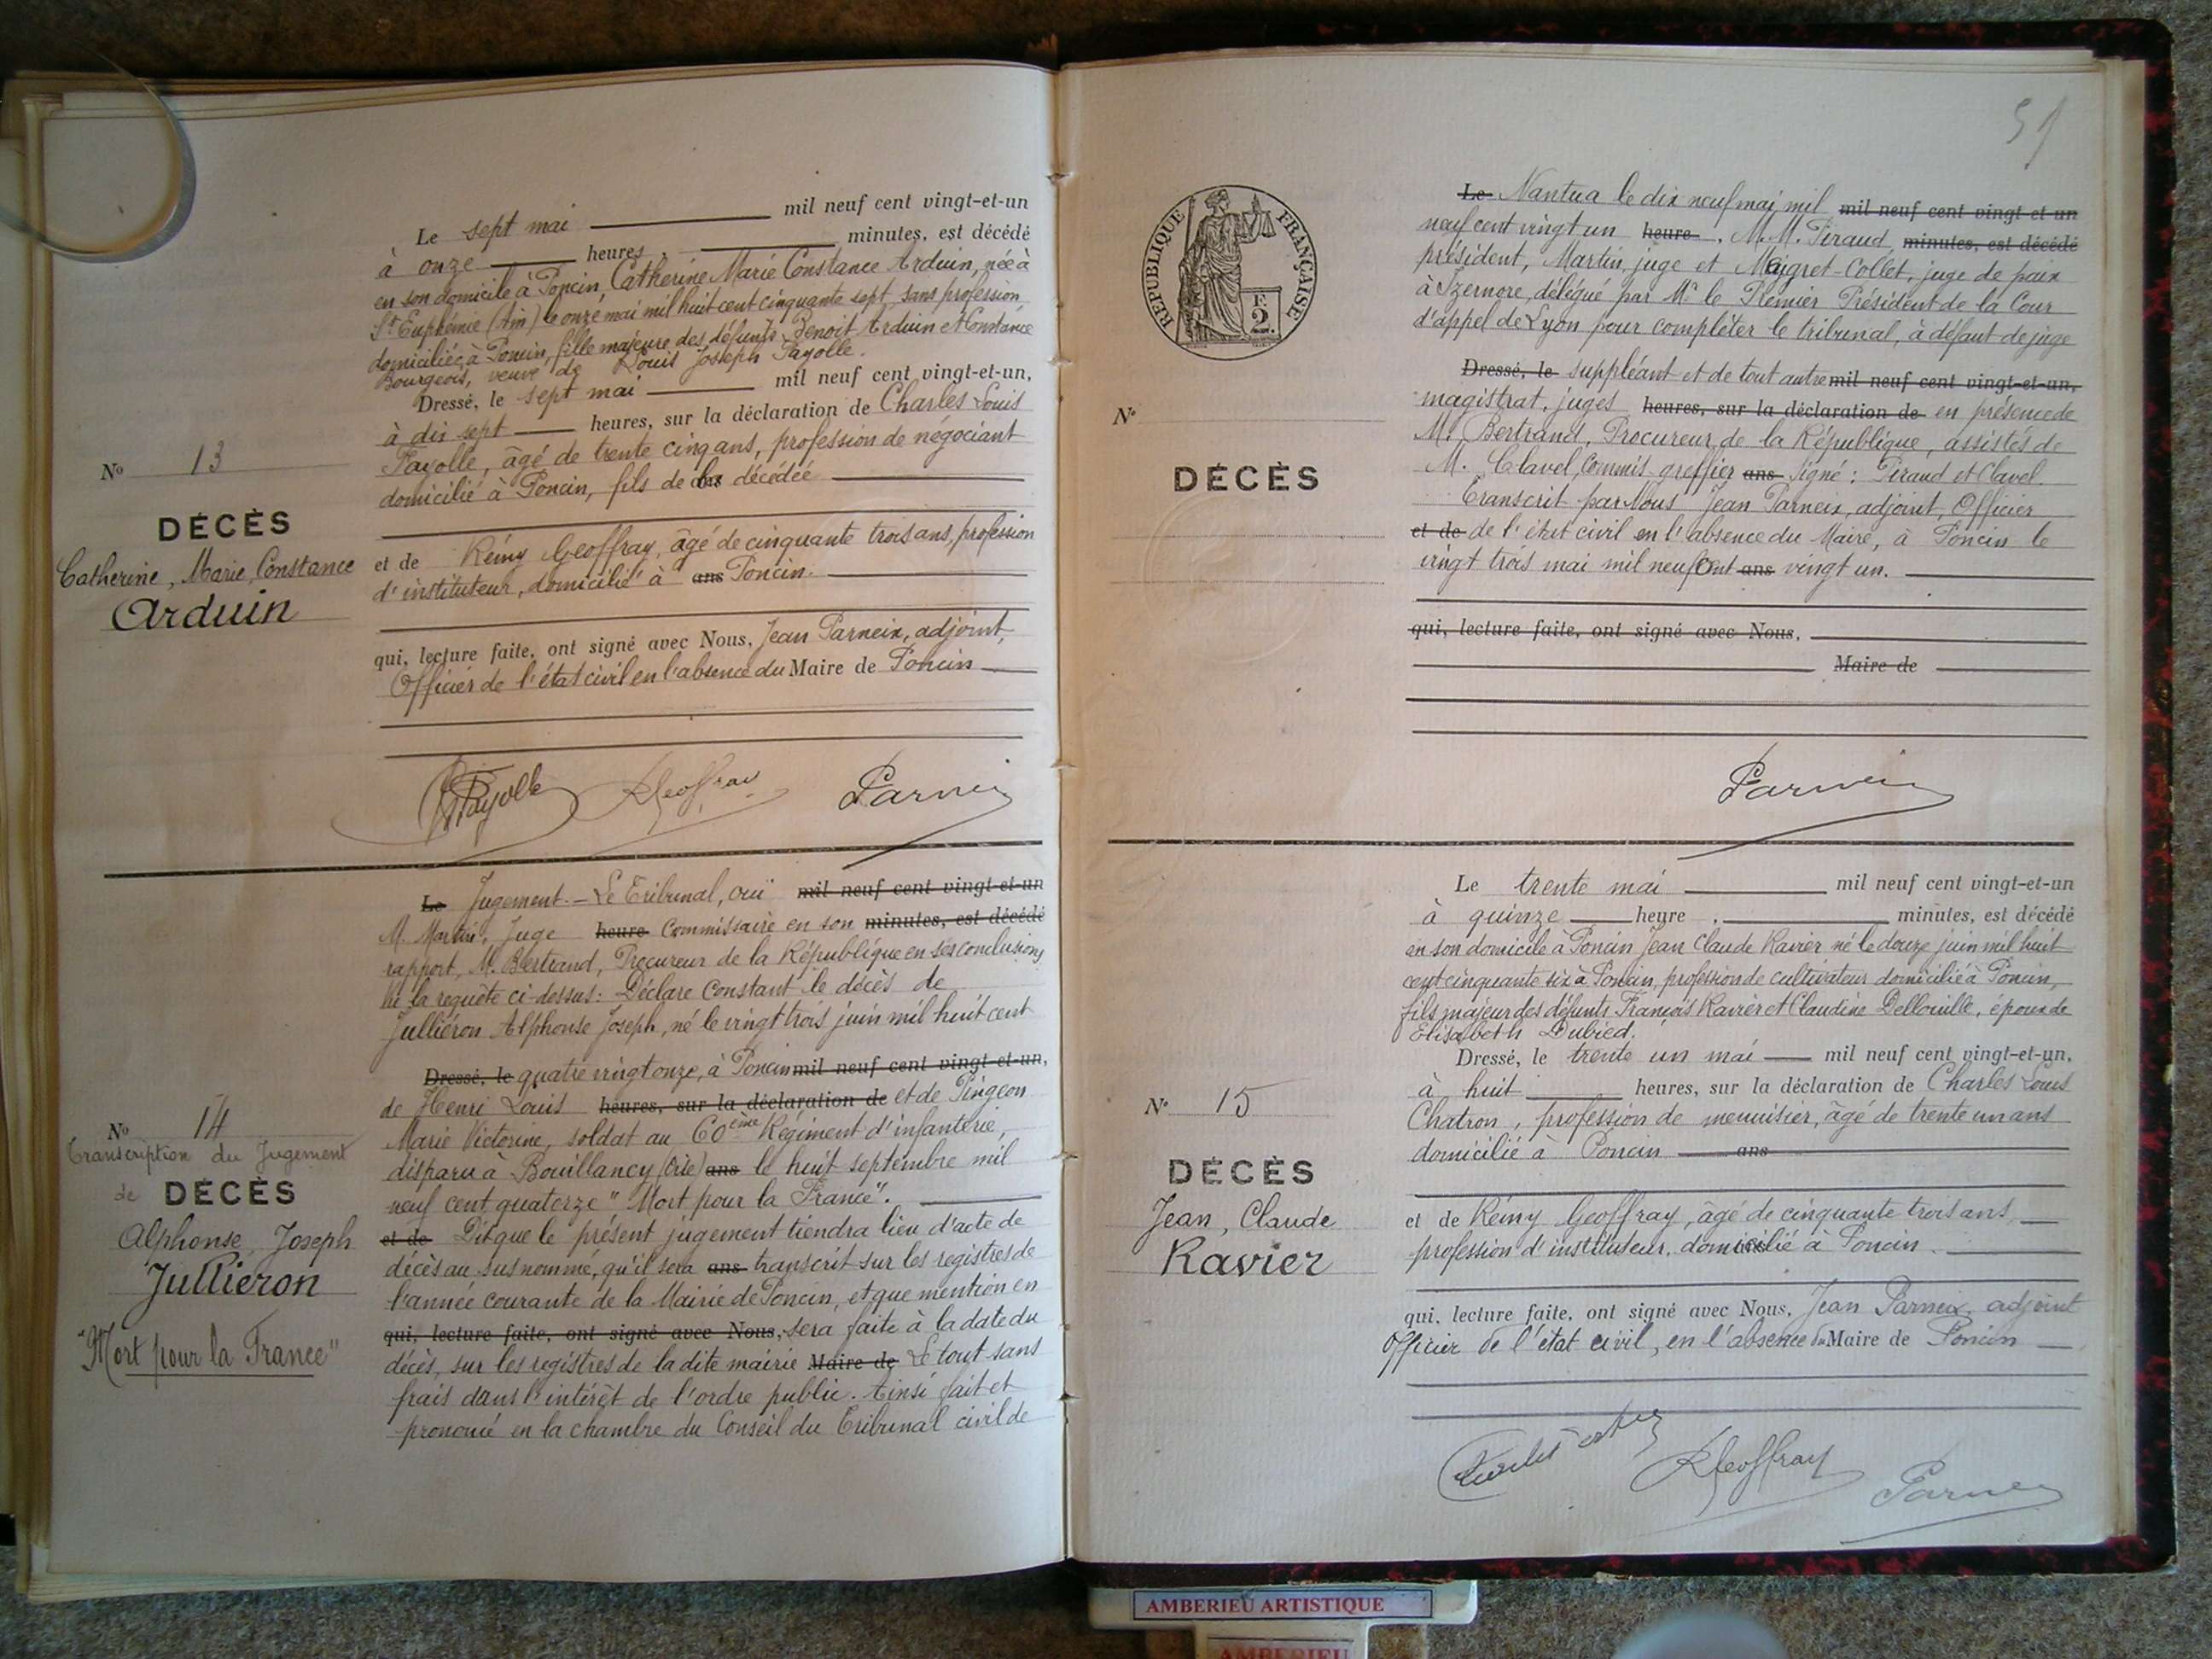 Le sept mai mil neuf cent vingt-et-un
à onze heures, minutes, est décédé
en son domicile à Poncin, Catherine Marie Constance Arduin, née à
St Euphémie (Ain) le onze mai mil huit cent cinquante sept, sans profession,
domiciliée à Poncin, fille majeure des défunts Benoit Arduin et Constance
Bourgeois, veuve de Louis Joseph Payolle.
Dressé, le sept mai mil neuf cent vingt-et-un,
à dix sept heures, sur la déclaration de Charles Louis
Payolle, âgé de trente cinq ans, profession de négociant
domicilié à Poncin, fils de la décédée
et de Rémy Geoffray, âgé de cinquante trois ans, profession
d'instituteur, domicilié à ans Poncin.
qui, lecture faite, ont signé avec Nous, Jean Parneix, adjoint,
Officier de l'état civil en l'absence du Maire de Poncin
Payolle RGeoffray Parneix
No 13
DÉCÈS
Catherine, Marie, Constance
Arduin
Le Jugement.- Le Tribunal, ouï mil neuf cent vingt-et-un
M. Martin, Juge heure Commissaire en son minutes, est décédé
rapport, M. Bertrand, Procureur de la République en ses conclusions
Vu la requête ci-dessus: Déclare Constant le décès de
Julliéron Alphonse Joseph, né le vingt trois juin mil huit cent
Dressé, le quatre vingt onze, à Poncin mil neuf cent vingt-et-un,
de Henri Louis heures, sur la déclaration de et de Pingeon
Marie Victorine, soldat au 60ème Régiment d'infanterie,
disparu à Bouillancy (Oise) ans le huit septembre mil
neuf cent quatorze "Mort pour la France".
et de Dit que le présent jugement tiendra lieu d'acte de
décès au susnommé, qu'il sera ans transcrit sur les registres de
l'année courante de la Mairie de Poncin, et que mention en
qui, lecture faite, ont signé avec Nous, sera faite à la date du
décès, sur les registres de la dite mairie Maire de Le tout sans
frais dans l'intérêt de l'ordre public. Ainsi fait et
prononcé en la chambre du Conseil du Tribunal civil de
No 14
Transcription du Jugement
de DÉCÈS
Alphonse Joseph
Julliéron
"Mort pour la France"
51
RÉPUBLIQUE FRANÇAISE
2 F.
Le Nantua le dix neuf mai mil mil neuf cent vingt et un
neuf cent vingt un heure, M.M. Piraud minutes, est décédé
président, Martin, juge et Maigret-Collet, juge de paix
à Izernore, délégué par Mr le Premier Président de la Cour
d'appel de Lyon pour compléter le tribunal, à défaut de juge
Dressé, le suppléant et de tout autre mil neuf cent vingt-et-un,
magistrat, juges heures, sur la déclaration de en présence de
M. Bertrand, Procureur de la République, assistés de
M. Clavel, Commis greffier ans Signé: Piraud et Clavel.
Transcrit par Nous Jean Parneix, adjoint, Officier
et de de l'état civil en l'absence du Maire, à Poncin le
vingt trois mai mil neuf cent ans vingt un.
qui, lecture faite, ont signé avec Nous,
Maire de
Parneix
No
DÉCÈS
Le trente mai mil neuf cent vingt-et-un
à quinze heure, minutes, est décédé
en son domicile à Poncin Jean Claude Ravier né le douze juin mil huit
cent cinquante six à Poncin, profession de cultivateur domicilié à Poncin,
fils majeur des défunts François Ravier et Claudine Dellouille, époux de
Elisabeth Dubied.
Dressé, le trente un mai mil neuf cent vingt-et-un,
à huit heures, sur la déclaration de Charles Louis
Chatron, profession de menuisier, âgé de trente un ans
domicilié à Poncin ans
et de Rémy Geoffray, âgé de cinquante trois ans,
profession d'instituteur, domicilié à Poncin.
qui, lecture faite, ont signé avec Nous, Jean Parneix, adjoint
Officier de l'état civil, en l'absence du Maire de Poncin
RGeoffray Parneix
No 15
DÉCÈS
Jean, Claude
Ravier
AMBERIEU ARTISTIQUE
AMBERIEU